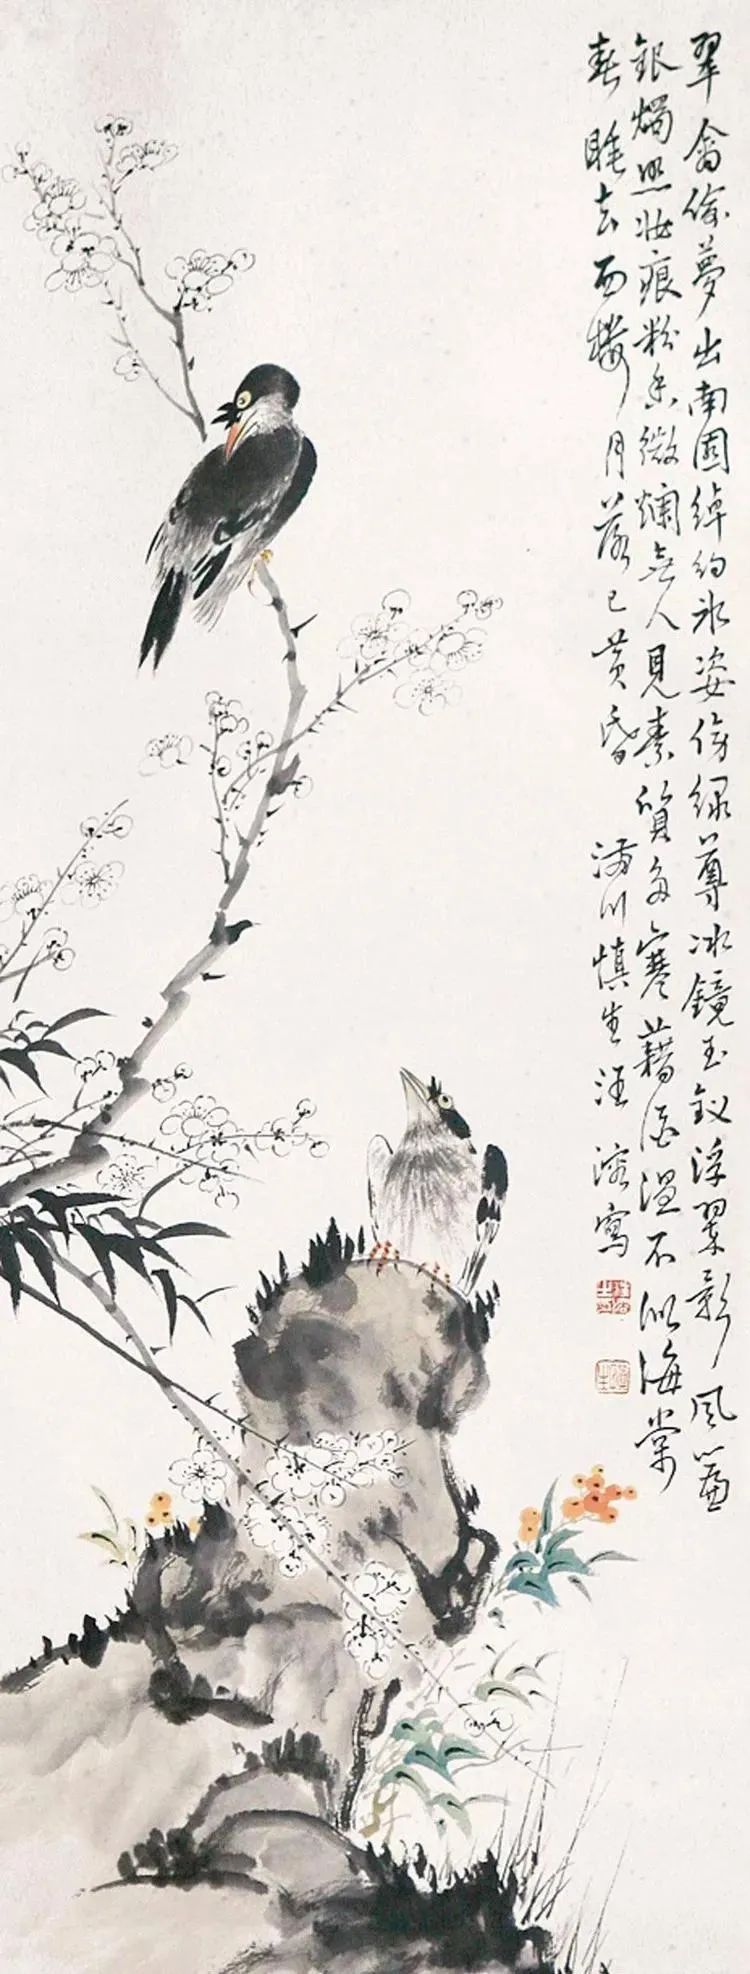 翠禽偷夢出南園綽約冰姿傍綠尊冰鏡玉釵浮翠影風簾
銀燭照妝痕粉香微爛無人見素質多寒藉酒溫不似海棠
春睡去西樓月落已黃昏 川慎生汪溶寫